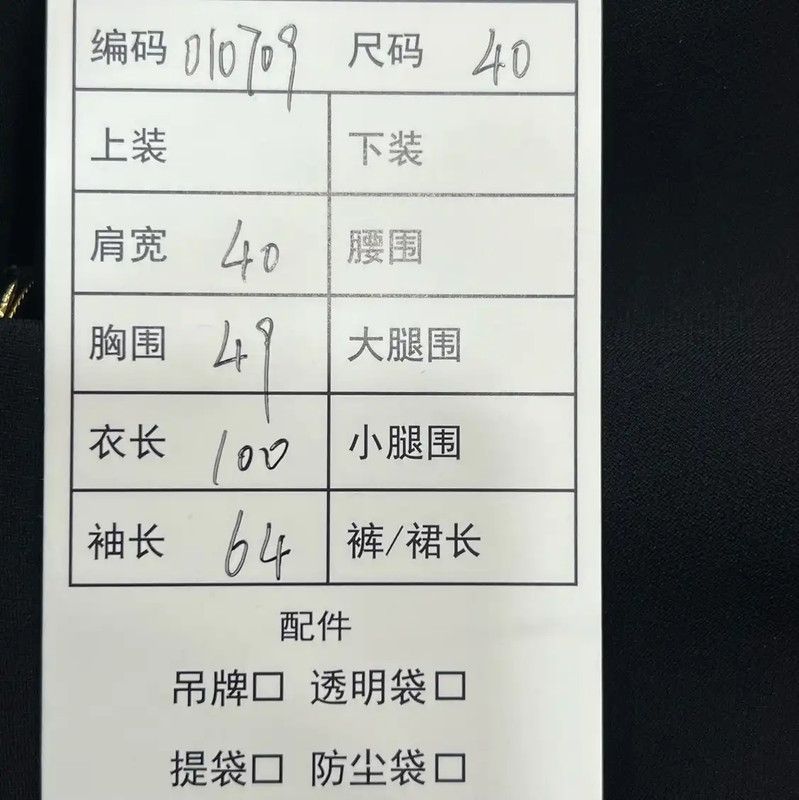 编码 010709 尺码 40
上装 下装
肩宽 40 腰围
胸围 49 大腿围
衣长 100 小腿围
袖长 64 裤/裙长
配件
吊牌□ 透明袋□
提袋□ 防尘袋□